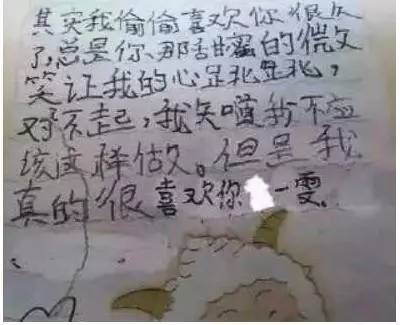 其实我偷偷喜欢你很久
了,总是你、那甜蜜的微
笑让我的心是兆是兆,
对不起,我知道我不应
该这样做。但是我
真的很喜欢你 一雯